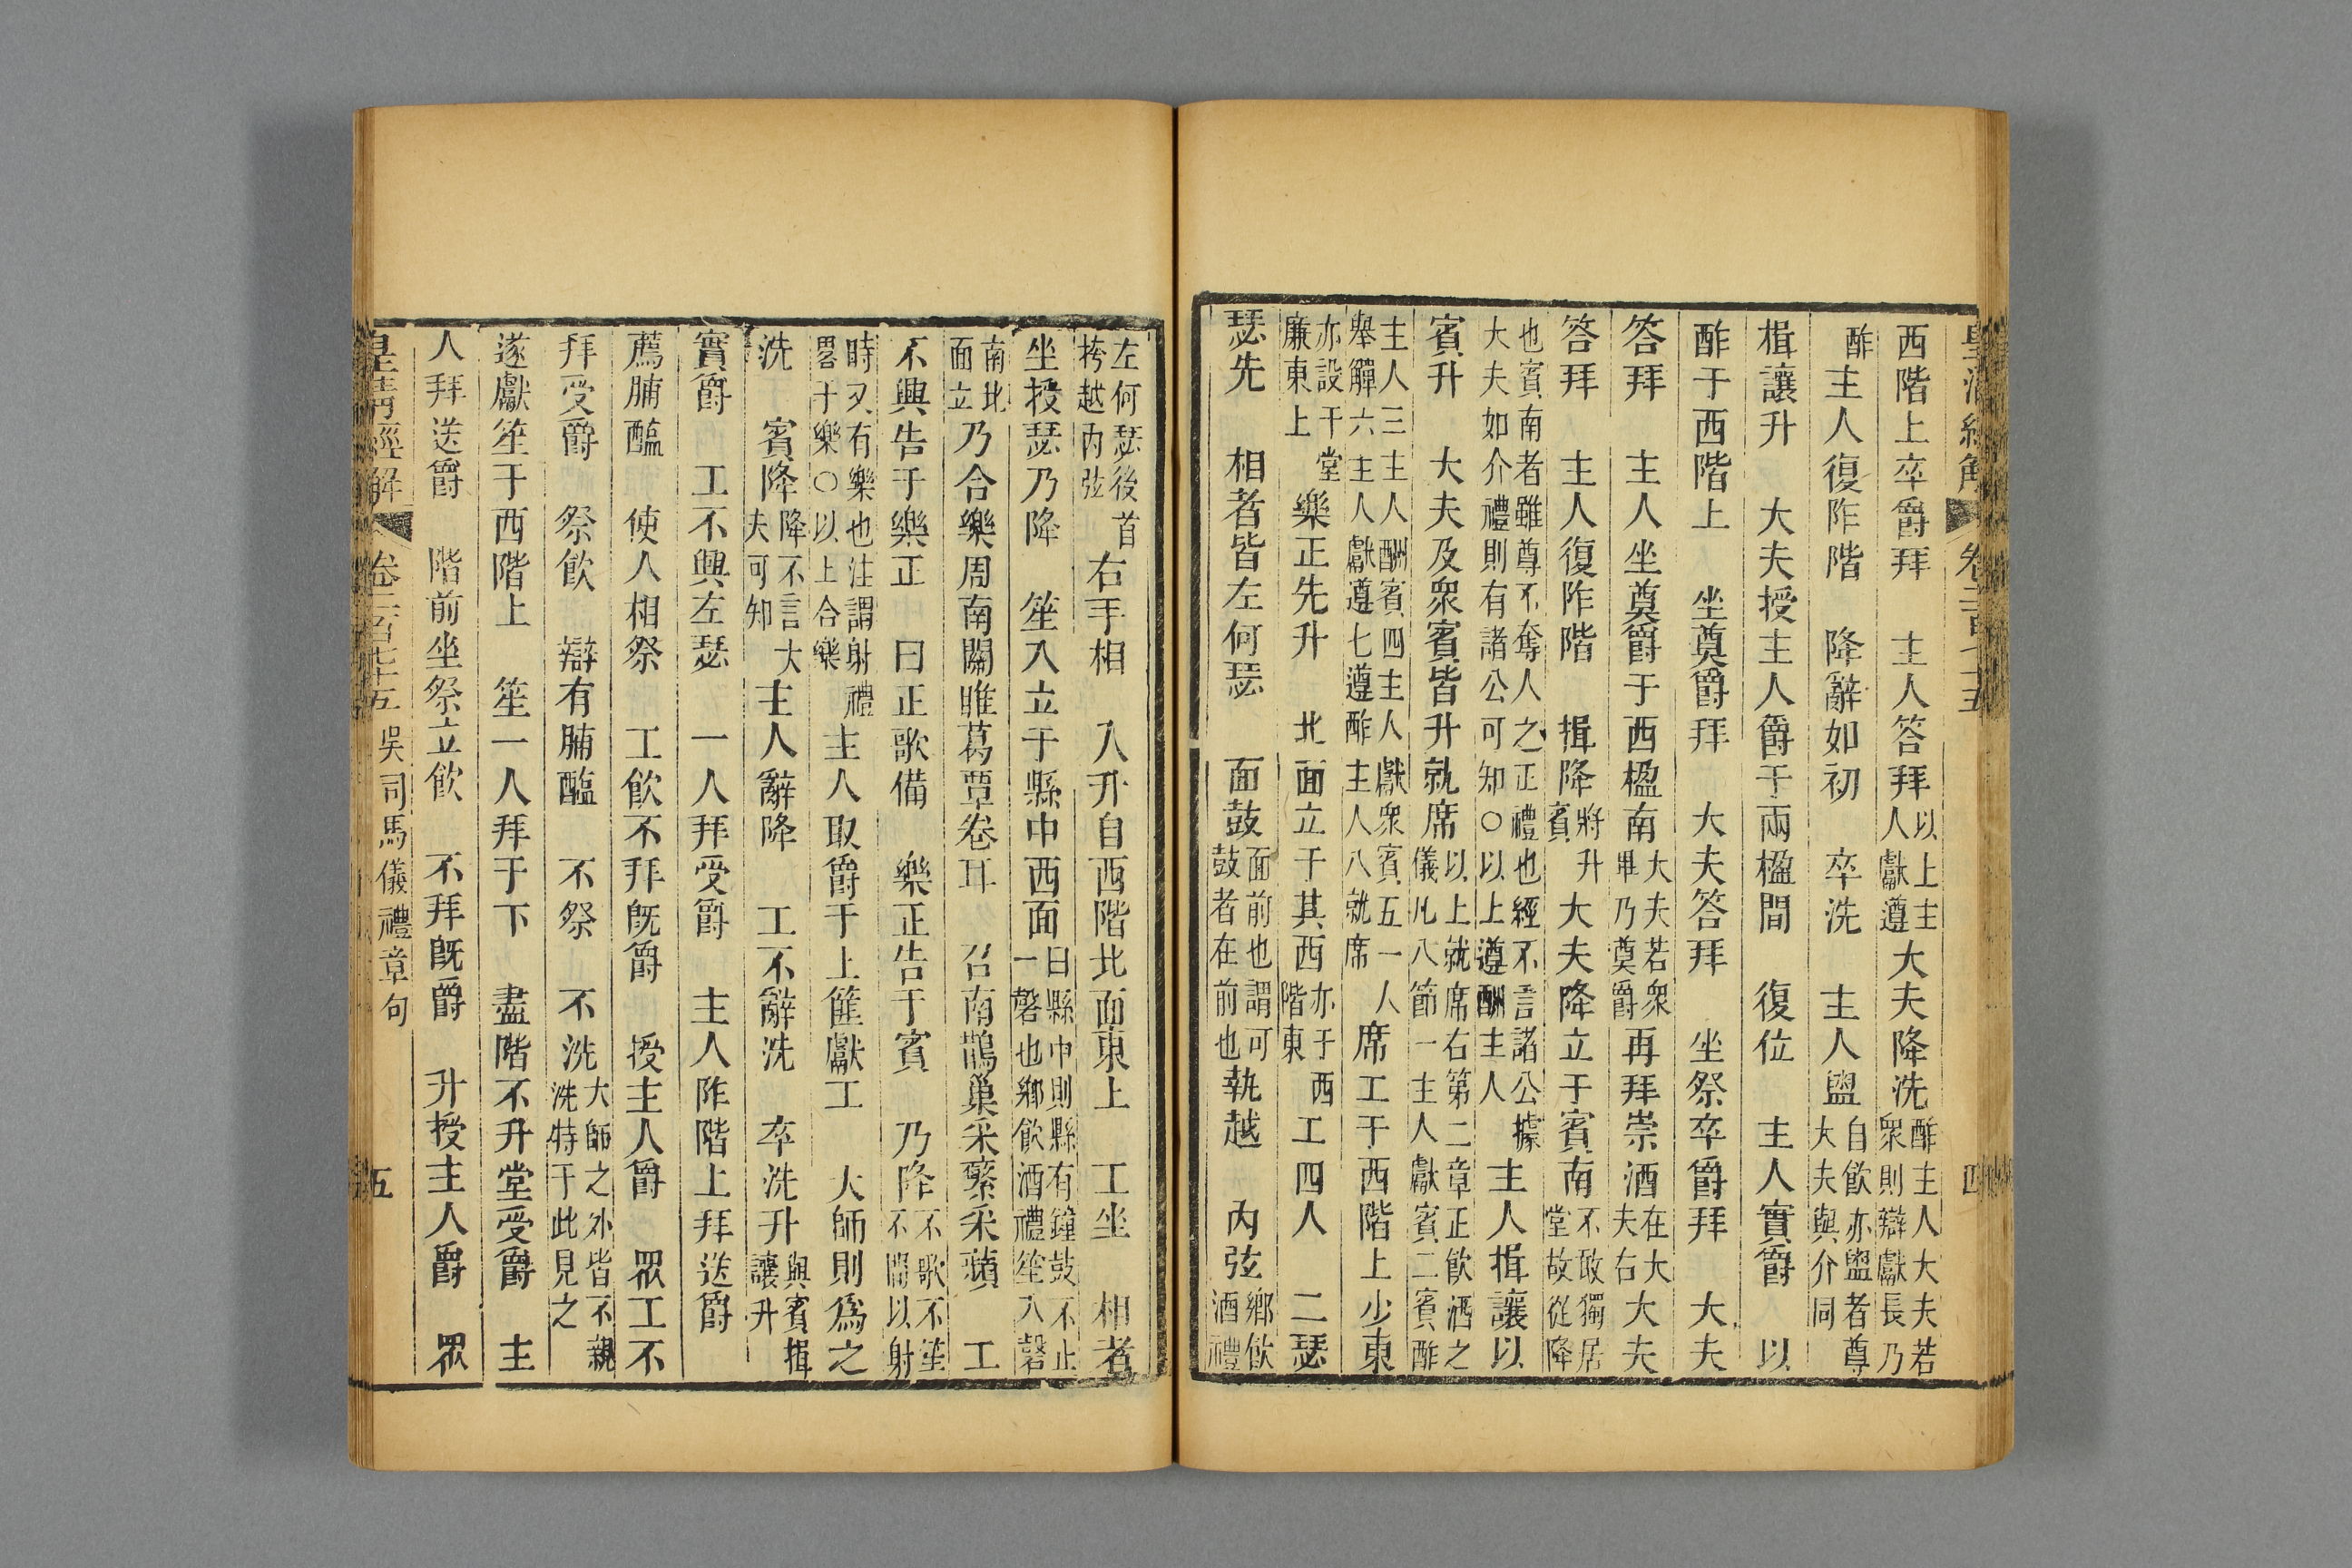 皇清經解 卷二百七十五 四
西階上卒爵拜 主人答拜以上主人獻遵大夫降洗酢主人大夫若衆則辯獻長乃
酢主人復阼階 降辭如初 卒洗 主人盥自飲亦盥者尊大夫與介同
揖讓升 大夫授主人爵于兩楹間 復位 主人實爵 以
酢于西階上 坐奠爵拜 大夫答拜 坐祭卒爵拜 大夫
答拜 主人坐奠爵于西楹南大夫若衆畢乃奠爵再拜崇酒在大夫右大夫
答拜 主人復阼階 揖降將升賓大夫降立于賓南不敢獨居堂故從降
也賓南者雖尊不奪人之正禮也經不言諸公據大夫如介禮則有諸公可知○以上遵酬主人主人揖讓以
賓升 大夫及衆賓皆升就席以上就席右第二章正飲酒之儀凡八節一主人獻賓二賓酢
主人三主人酬賓四主人獻衆賓五一人舉觶六主人獻遵七遵酢主人八就席席工于西階上少東
亦設于堂廉東上樂正先升 北面立于其西亦于西階東工四人 二瑟
瑟先 相者皆左何瑟 面鼓面前也謂可鼓者在前也執越 内弦鄉飲酒禮
左何瑟後首挎越内弦右手相 入升自西階北面東上 工坐 相者
坐授瑟乃降 笙入立于縣中西面曰縣中則縣有鐘鼓不止一磬也鄉飲酒禮笙入磬
南北面立乃合樂周南關雎葛覃卷耳 召南鵲巢采蘩采蘋 工
不興告于樂正 曰正歌備 樂正告于賓 乃降不歌不笙不閒以射
時又有樂也注謂射禮畧于樂○以上合樂主人取爵于上篚獻工 大師則爲之
洗 賓降降不言大夫可知主人辭降 工不辭洗 卒洗升與賓揖讓升
實爵 工不興左瑟 一人拜受爵 主人阼階上拜送爵
薦脯醢 使人相祭 工飲不拜既爵 授主人爵 眾工不
拜受爵 祭飲 辯有脯醢 不祭 不洗大師之外皆不親洗特于此見之
遂獻笙于西階上 笙一人拜于下 盡階不升堂受爵 主
人拜送爵 階前坐祭立飲 不拜既爵 升授主人爵 眾
皇清經解 卷二百七十五 吳司馬儀禮章句 五